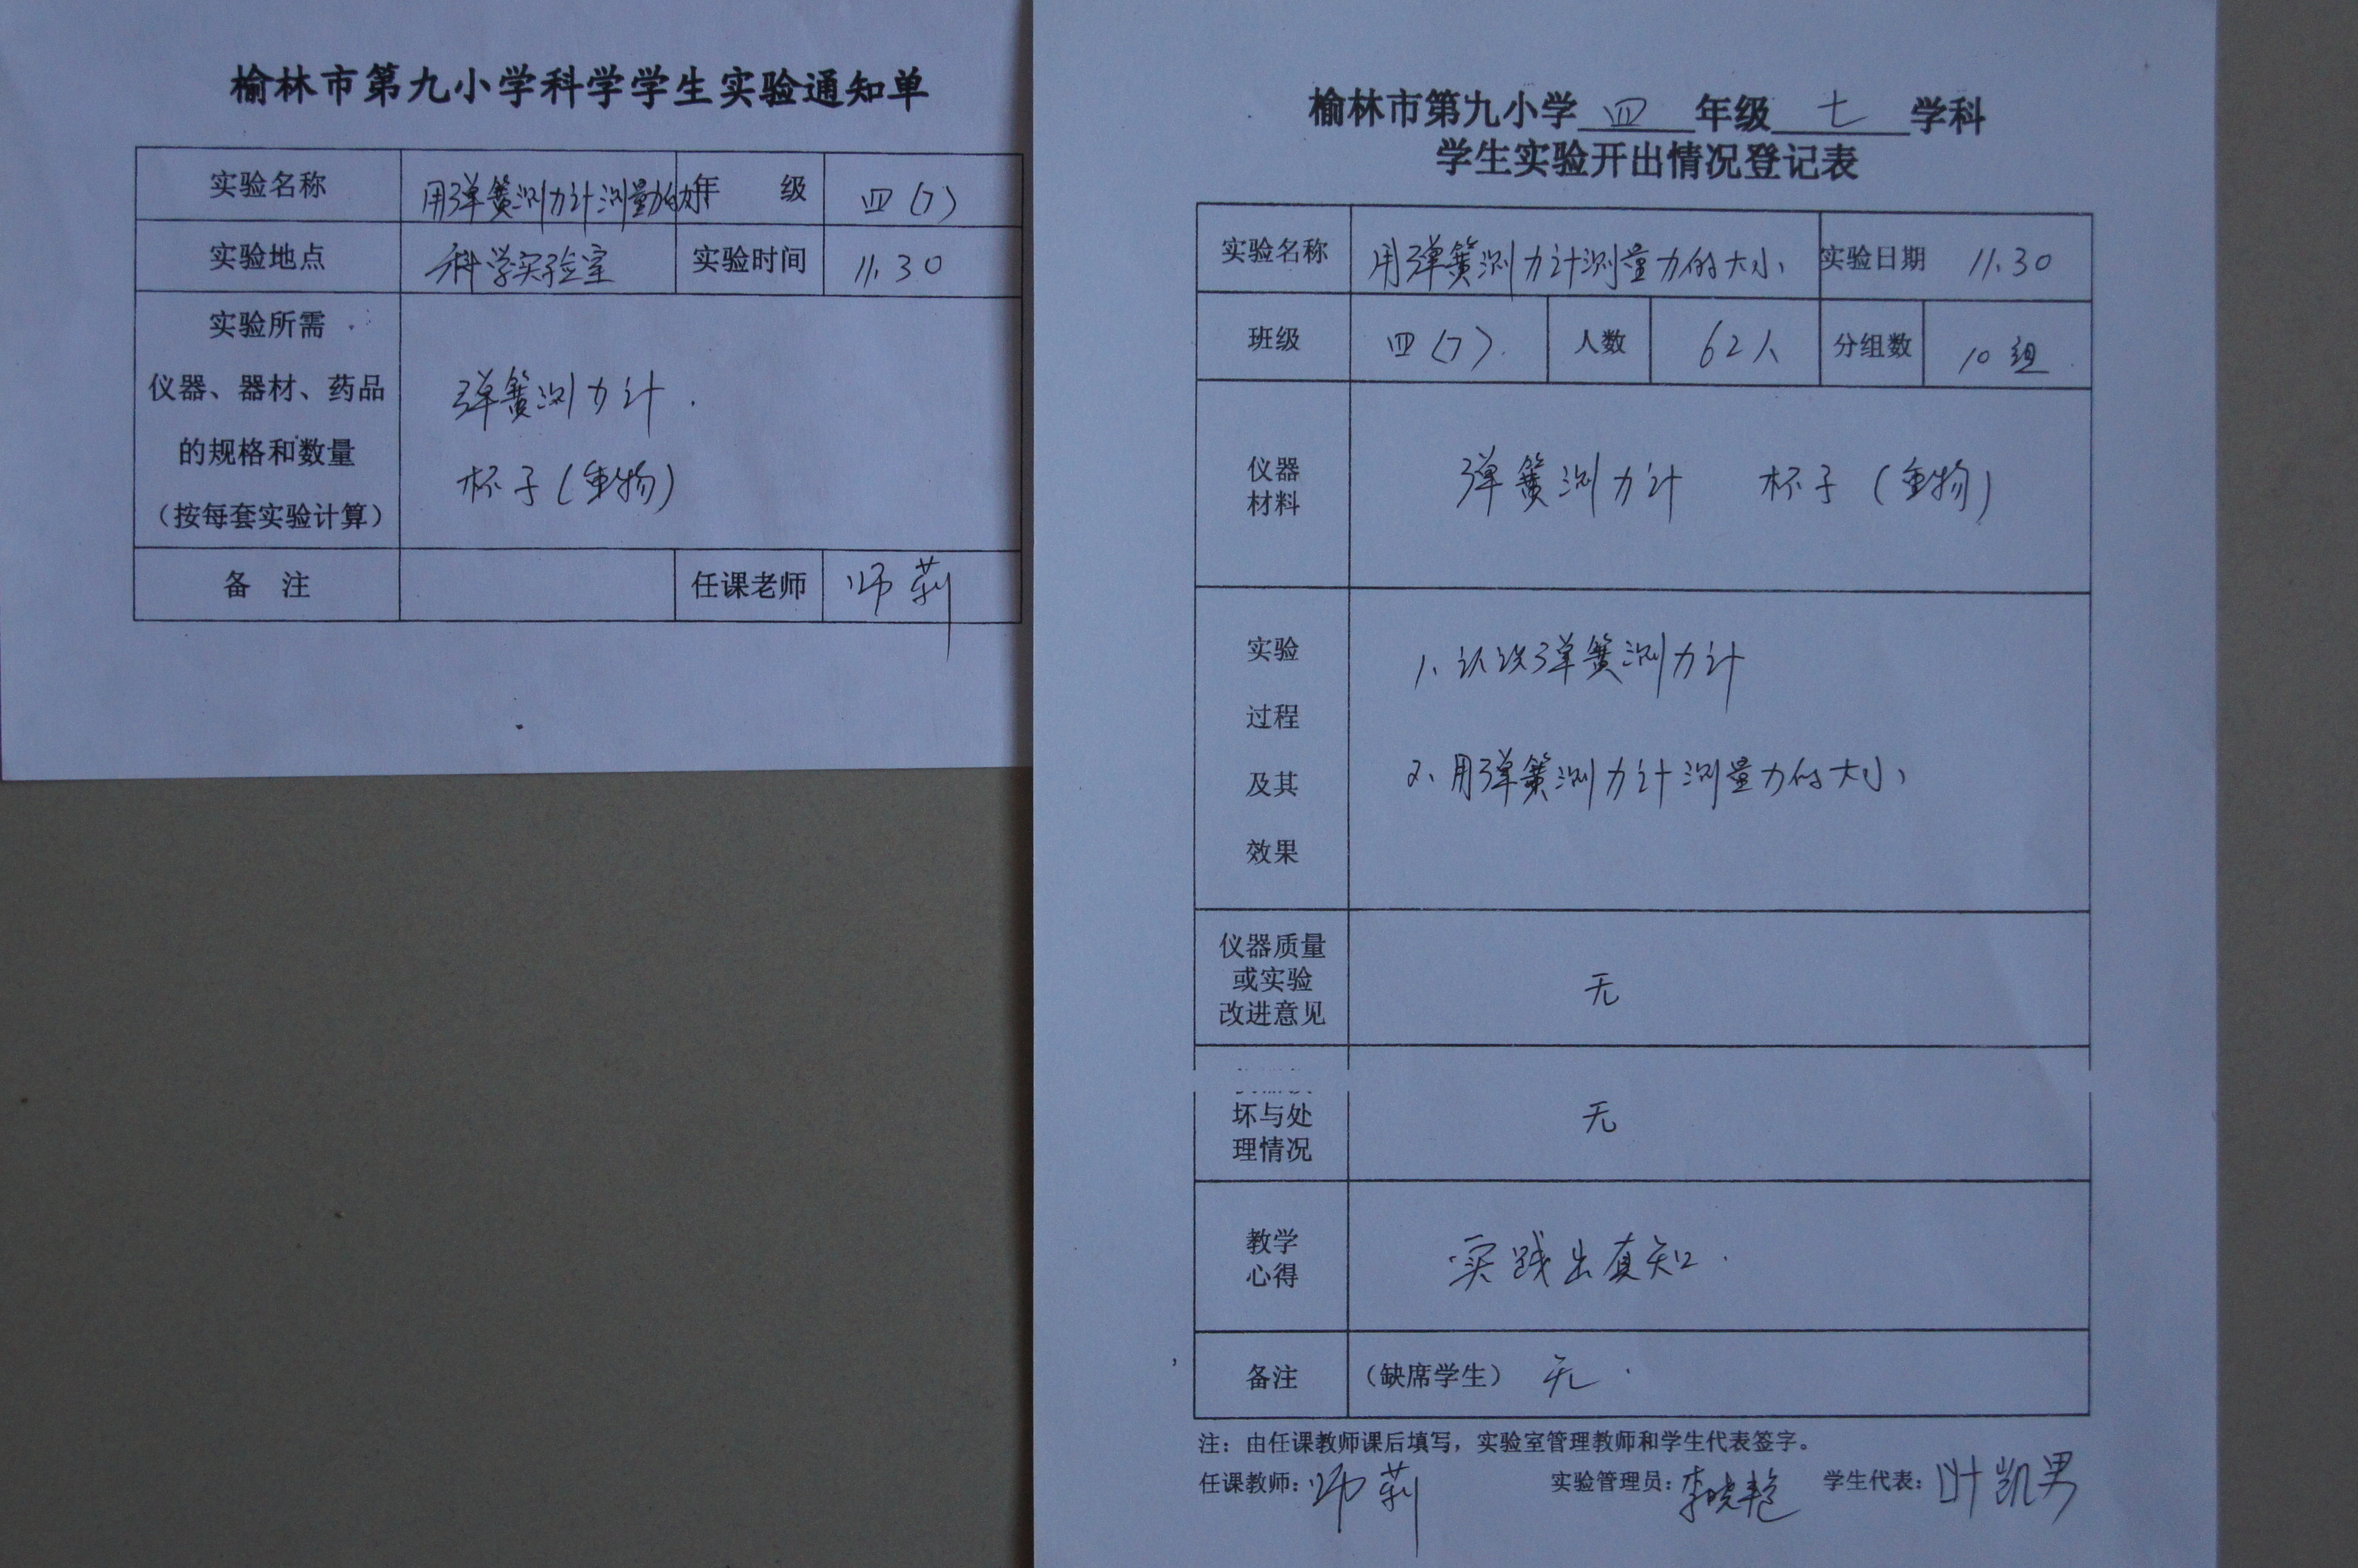 榆林市第九小学科学学生实验通知单
实验名称 用弹簧测力计测量力的 年 级 四(7)
实验地点 科学实验室 实验时间 11.30
实验所需
仪器、器材、药品
的规格和数量
（按每套实验计算）
弹簧测力计.
杯子(重物)
备 注 任课老师 师莉
榆林市第九小学 四 年级 七 学科
学生实验开出情况登记表
实验名称 用弹簧测力计测量力的大小 实验日期 11.30
班级 四(7). 人数 62人 分组数 10组.
仪器
材料
弹簧测力计 杯子(重物)
实验
过程
及其
效果
1、认识弹簧测力计
2、用弹簧测力计测量力的大小
仪器质量
或实验
改进意见
无
坏与处
理情况
无
教学
心得
实践出真知.
备注 （缺席学生） 无.
注：由任课教师课后填写，实验室管理教师和学生代表签字。
任课教师：师莉 实验管理员：李晓艳 学生代表：叶凯男